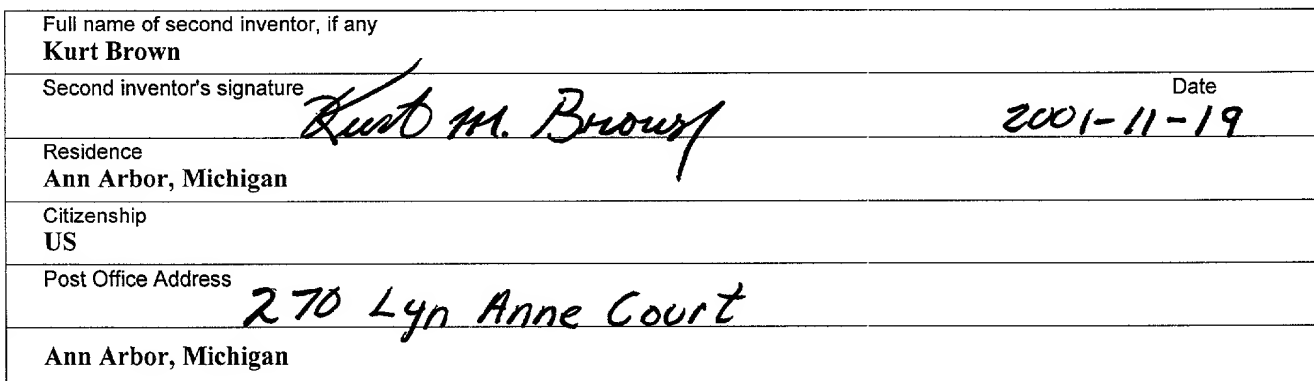 Full name of second inventor, if any
Kurt Brown
Second inventor's signature Kurt M. Brown Date
2001-11-19
Residence
Ann Arbor, Michigan
Citizenship
US
Post Office Address 270 Lyn Anne Court
Ann Arbor, Michigan